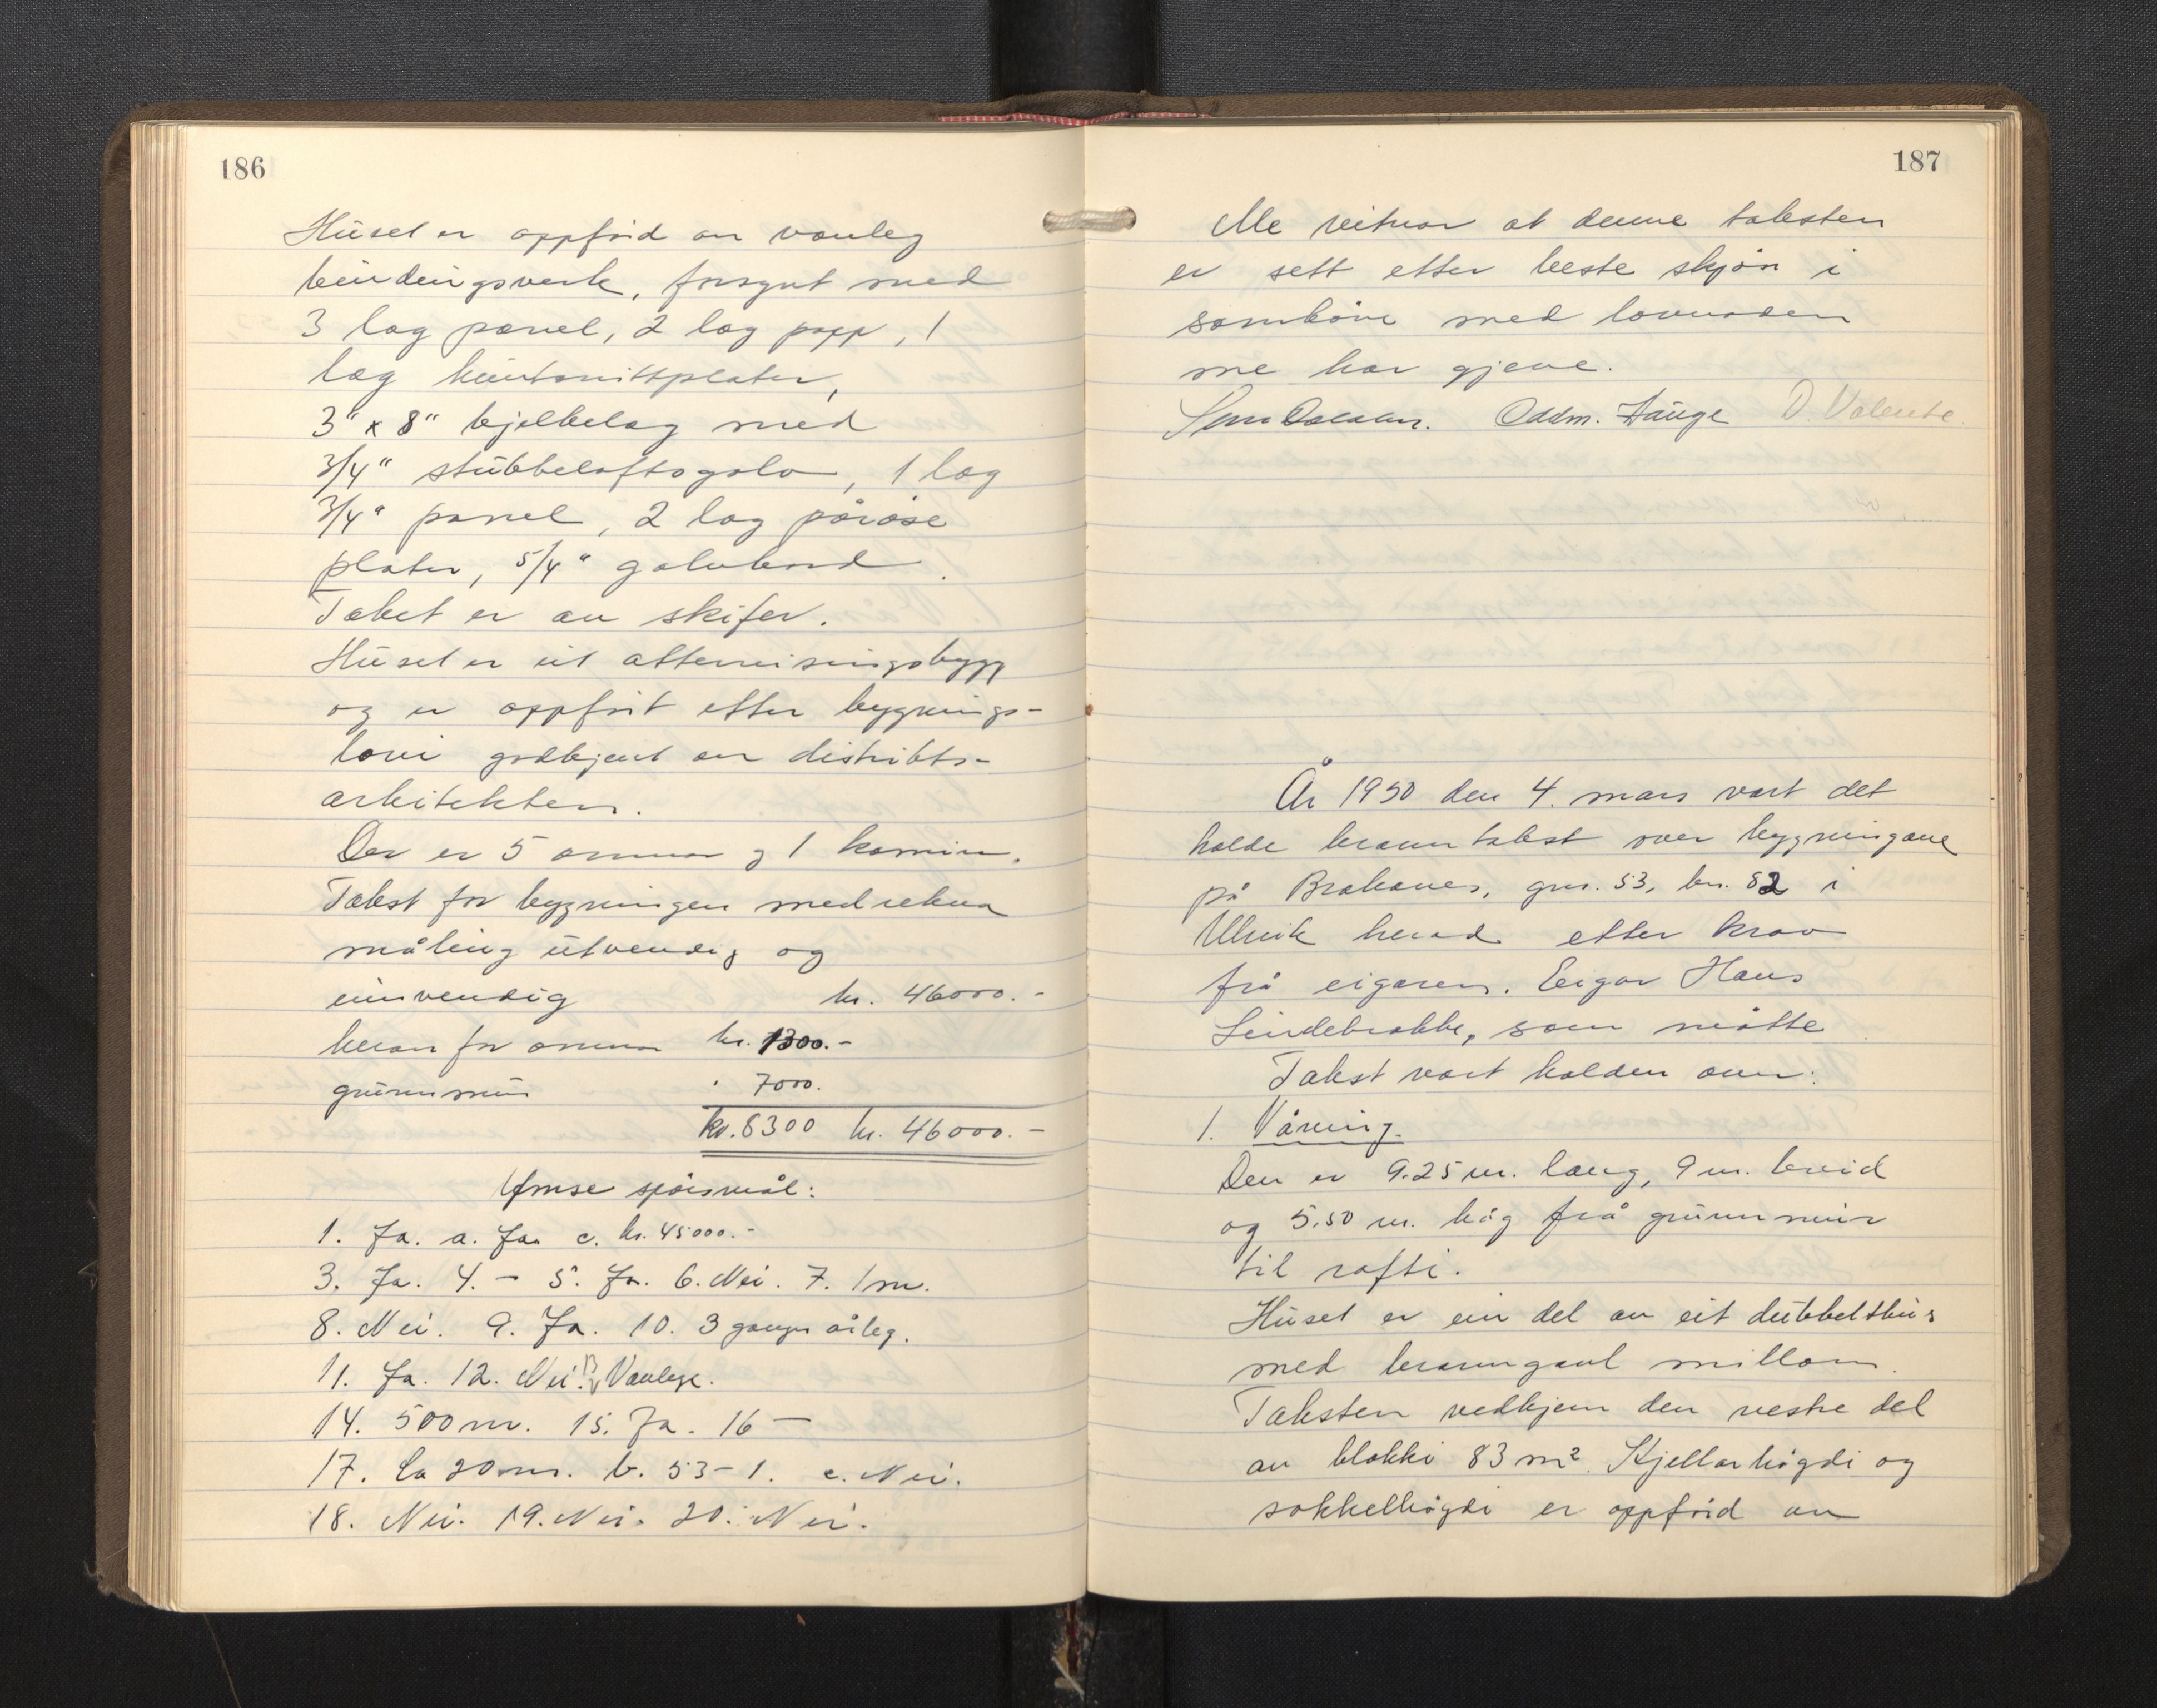 186
Huset er oppförd av vanleg
bindingsverk, forsynt med
3 lag panel, 2 lag papp, 1
lag huntonittplater,
3" x 8" bjelkelag med
3/4" stubbeloftsgolv, 1 lag
3/4" panel, 2 lag porøse
plater, 5/4" golvbord.
Taket er av skifer.
Huset er eit attereisingsbygg
og er oppført etter bygnings-
lovi godkjent av distrikts-
arkitekten.
Der er 5 omnar og 1 kamin.
Takst for bygningen medrekna
måling utvendig og
innvendig kr. 46000.-
herav for omnar kr. 1300.-
grunnmur " 7000.
kr. 8300 kr. 46000.-
Ymse spörsmål:
1. Ja. a. Ja. c. kr. 45000.-
3. Ja. 4. - 5. Ja. 6. Nei. 7. 1 m.
8. Nei. 9. Ja. 10. 3 gonger årleg.
11. Ja. 12. Nei. 13 Vanlege.
14. 500 m. 15. Ja. 16 -
17. Ca 20 m. b. 53-1. c. Nei.
18. Nei. 19. Nei. 20. Nei.
187
Me vitnar at denne taksten
er sett etter beste skjön i
samhöve med lovnaden
me har gjeve.
Oddm. Hauge
År 1950 den 4. mars vart det
halde branntakst over bygningane
på Brakanes, gnr. 53, bnr. 82 i
Ulvik herad etter krav
frå eigaren. Eigar Hans
Lindebrekke, som møtte
Takst vart halden over:
1. Våning.
Den er 9.25 m. lang, 9 m. breid
og 5.50 m. høg frå grunnmur
til rafti.
Huset er ein del av eit dubbelthus
med branngavl millom.
Taksten vedkjem den vestre del
av blokki 83 m². Kjellarhögdi og
sokkelhögdi er oppförd av